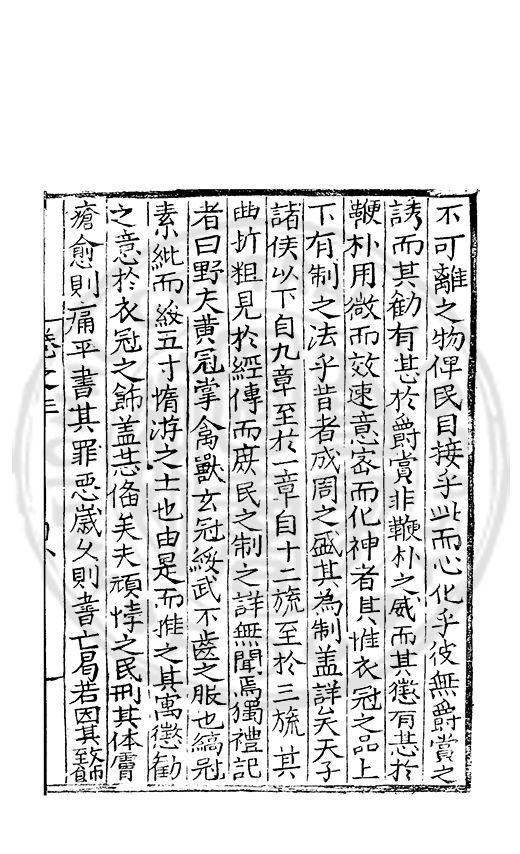 不可離之物俾民目接乎此而心化乎彼無爵賞之
誘而其勸有甚於爵賞非鞭朴之威而其懲有甚於
鞭朴用微而效速意密而化神者其惟衣冠之品上
下有制之法乎昔者成周之盛其為制盖詳矣天子
諸侯以下自九章至於一章自十二旒至於三旒其
曲折粗見於經傳而庶民之制之詳無聞焉獨禮記
者曰野夫黄冠掌禽獸玄冠綏武不齒之服也縞冠
素紕而綏五寸惰游之士也由是而推之其寓懲勸
之意於衣冠之飾盖甚俻矣夫頑悖之民刑其体膚
瘡愈則痛平書其罪惡歲久則書亡曷若因其致飾
卷之